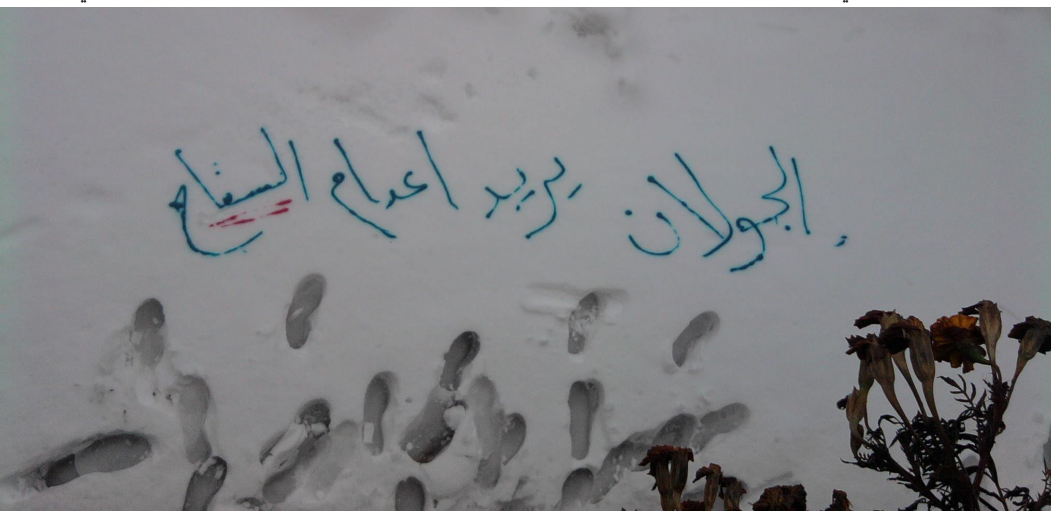 الجولان يريد اعدام السفاح